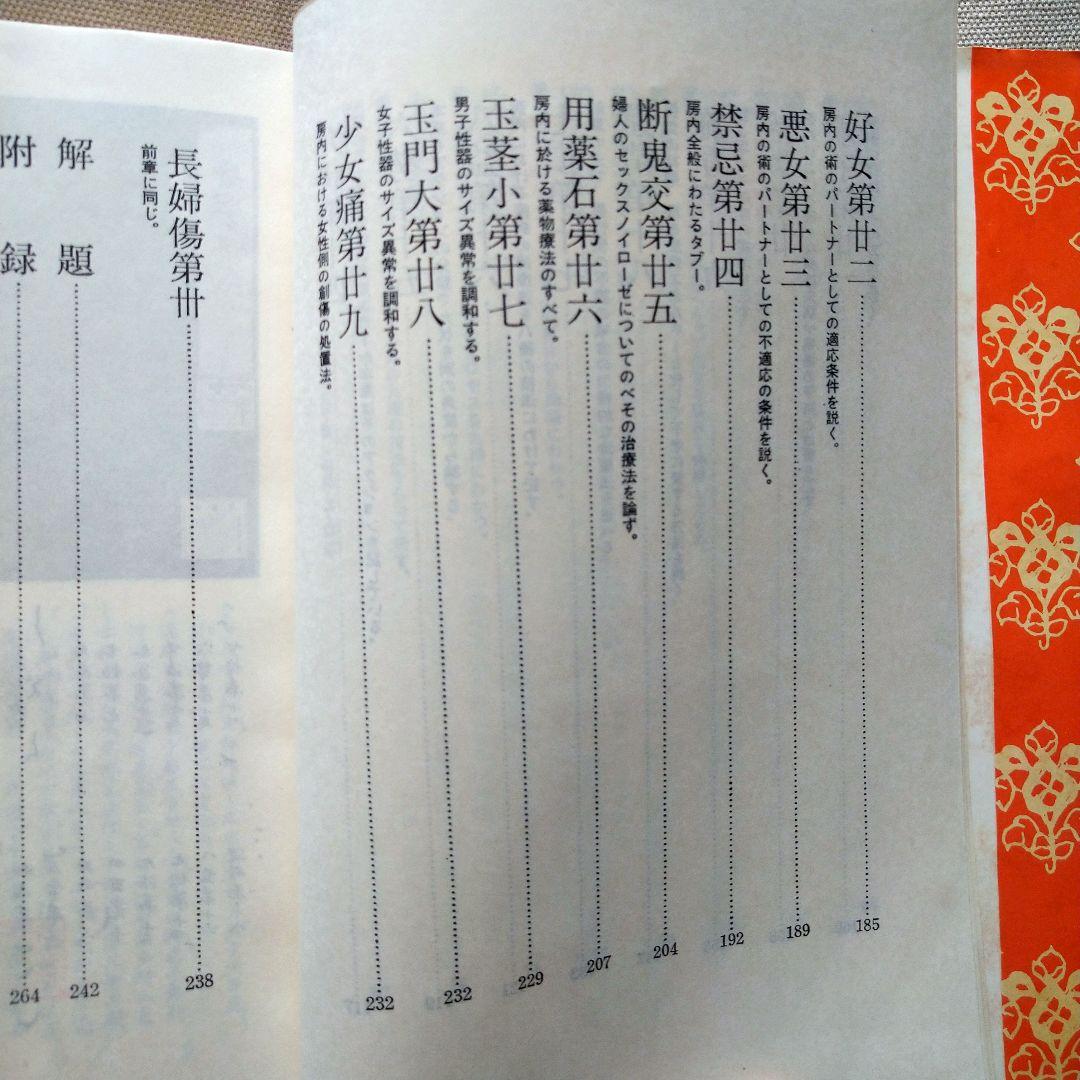 好女第廿二 185
房内の術のパートナーとしての適応条件を説く。
悪女第廿三 189
房内の術のパートナーとしての不適応の条件を説く。
禁忌第廿四 192
房内全般にわたるタブー。
断鬼交第廿五 204
婦人のセックスノイローゼについてのべその治療法を論ず。
用薬石第廿六 207
房内に於ける薬物療法のすべて。
玉茎小第廿七 229
男子性器のサイズ異常を調和する。
玉門大第廿八 232
女子性器のサイズ異常を調和する。
少女痛第廿九 232
房内における女性側の創傷の処置法。
長婦傷第卅 238
前章に同じ。
解題 242
附録 264